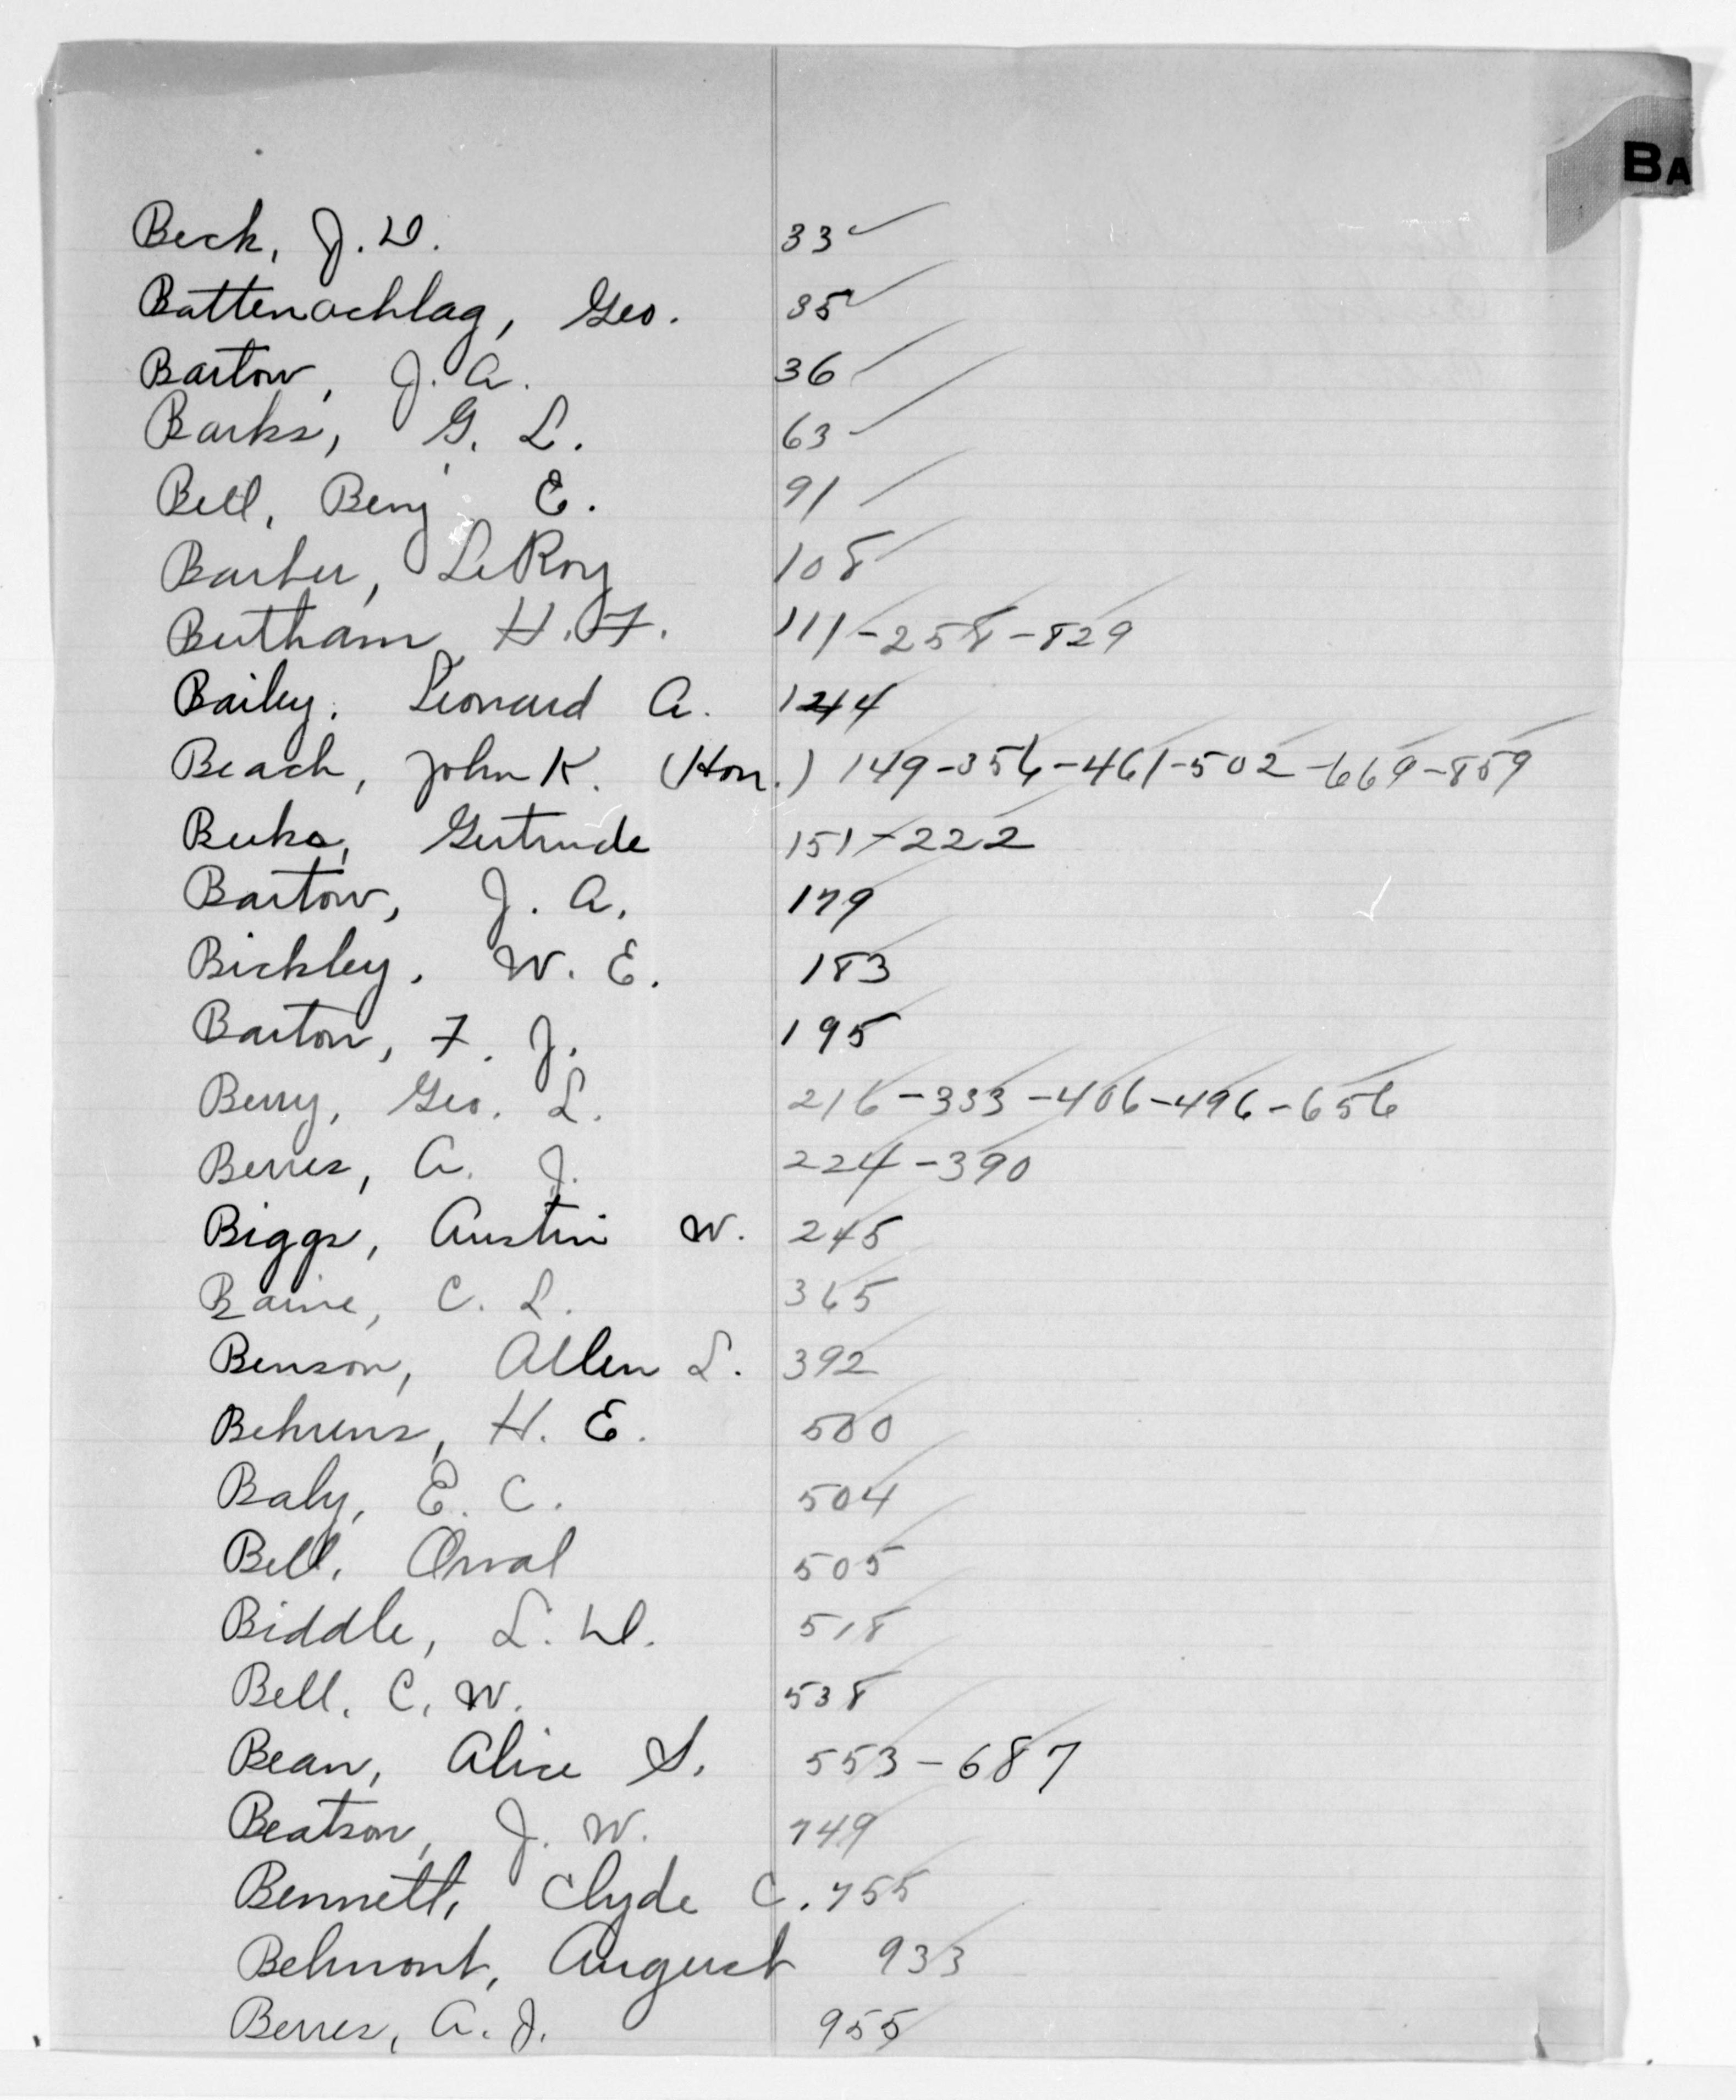 BA
Beck, J. D. 33
Battenschlag, Geo. 35
Bartow, J. A. 36
Barks, G. L. 63
Bell, Benj. E. 91
Barber, LeRoy 108
Butham, H. F. 111-258-829
Bailey, Leonard A. 124
Beach, John K. (Hon.) 149-356-461-502-669-859
Gertrude 151-222
Bartow, J. A. 179
Bickley, W. E. 183
Barton, F. J. 195
Berry, Geo. L. 216-333-406-496-656
Berres, A. J. 224-390
Biggs, Austin W. 245
Baine, C. L. 365
Benson, Allen L. 392
Behrens, H. E. 500
Baly, E. C. 504
Bell, Orval 505
Biddle, L. D. 518
Bell, C. W. 538
Bean, Alice S. 553-687
Beatson, J. W. 749
Bennett, Clyde C. 755
Belmont, August 933
Berres, A. J. 955